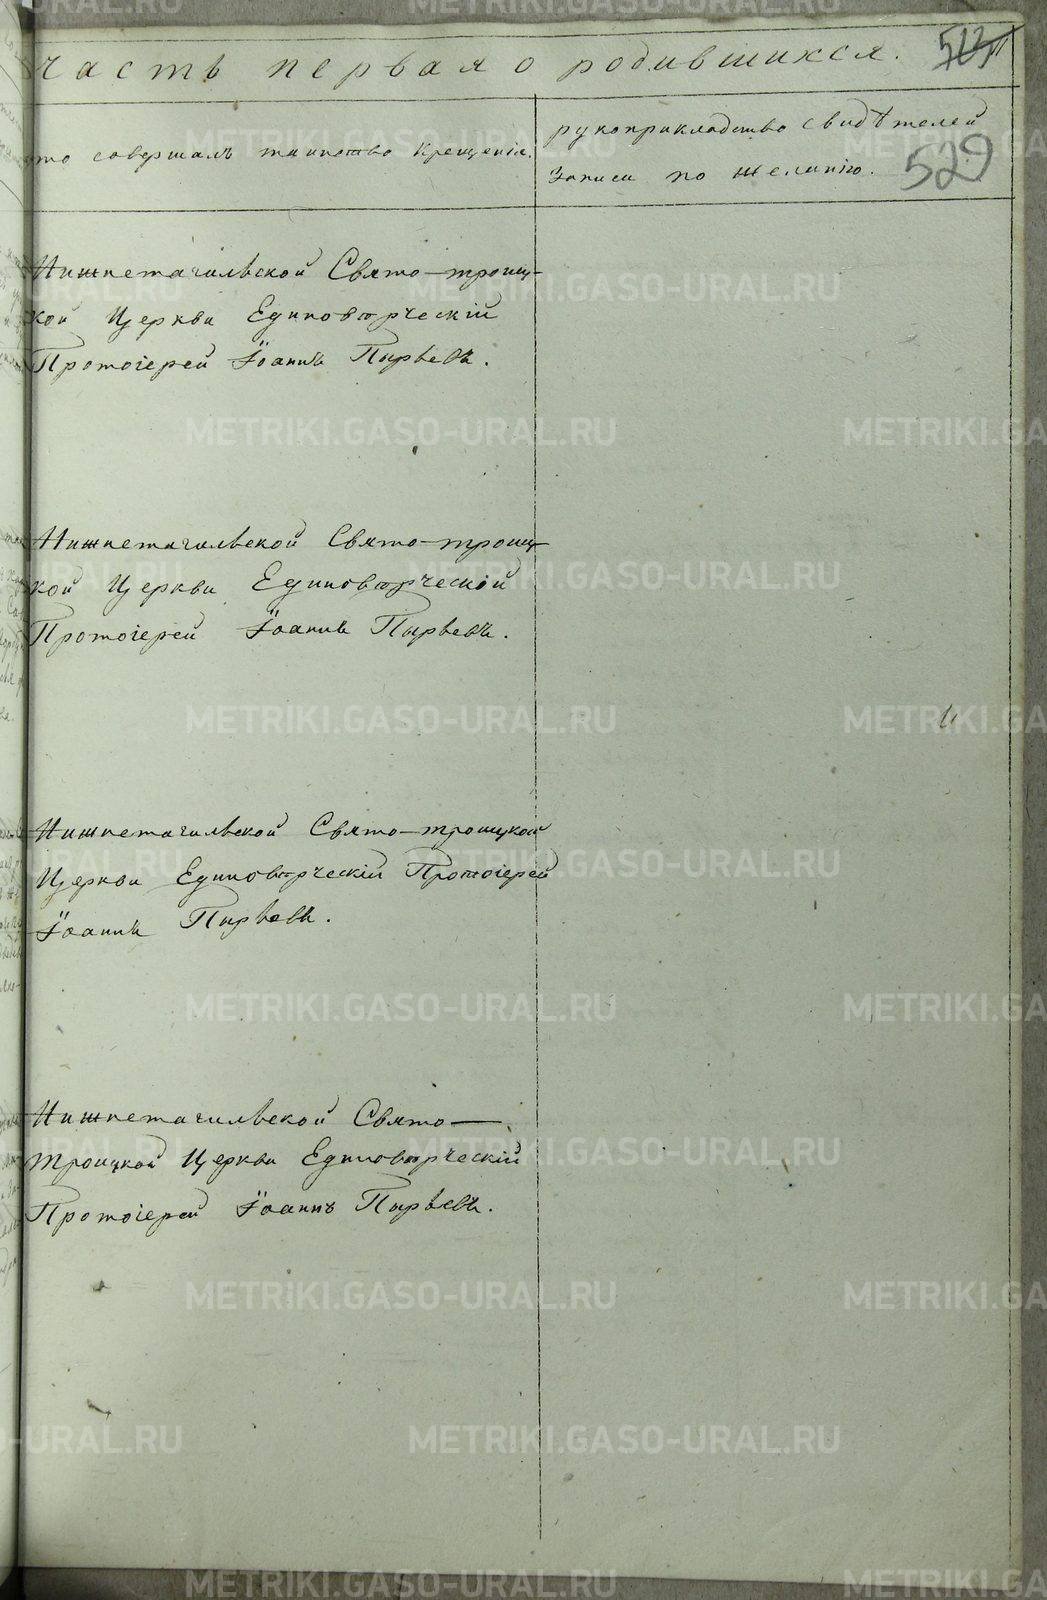 часть первая о родившихся.
529
кто совершалъ таинство Крещенія.
рукоприкладство свидѣтелей
записи по желанію.
Нижнетагильской Свято-троиц-
кой Церкви Единовѣрческій
Протоіерей Іоаннъ Пырьевъ.
Нижнетагильской Свято-троиц-
кой Церкви Единовѣрческой
Протоіерей Іоаннъ Пырьевъ.
Нижнетагильской Свято-троицкой
Церкви Единовѣрческій Протоіерей
Іоаннъ Пырьевъ.
Нижнетагильской Свято-
троицкой Церкви Единовѣрческій
Протоіерей Іоаннъ Пырьевъ.
METRIKI.GASO-URAL.RU